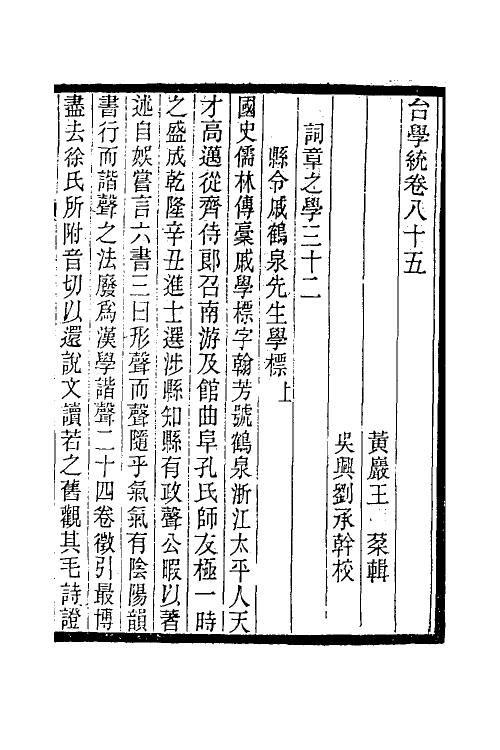 台學統卷八十五
黃巖王 棻輯
吳興劉承幹校
詞章之學三十二
縣令戚鶴泉先生學標上
國史儒林傳稾戚學標字翰芳號鶴泉浙江太平人天
才高邁從齊侍郎召南游及館曲阜孔氏師友極一時
之盛成乾隆辛丑進士選涉縣知縣有政聲公暇以著
述自娛嘗言六書三曰形聲而聲隨乎氣氣有陰陽韻
書行而諧聲之法廢爲漢學諧聲二十四卷徵引最博
盡去徐氏所附音切以還說文讀若之舊觀其毛詩證